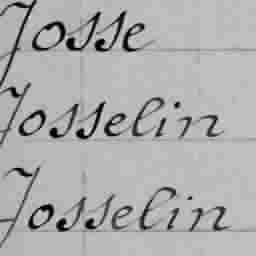 Josse
Josselin
Josselin